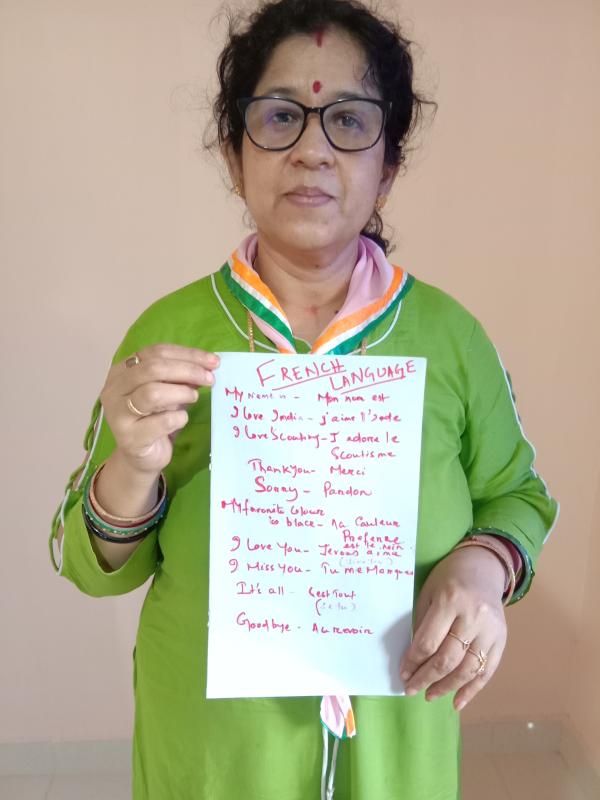 FRENCH
LANGUAGE
My Name is - Mon nom est
I love India - j'aime l'Inde
I love Scouting - J adore le
Scoutisme
Thankyou - Merci
Sorry - Pardon
My favorite Colour
is black - la Couleur
Preferee
est le noir.
I Love You - Je vous aime
I Miss You - Tu me Manques
It's all - Cest Tout
(Se tu)
Goodbye - Au revoir